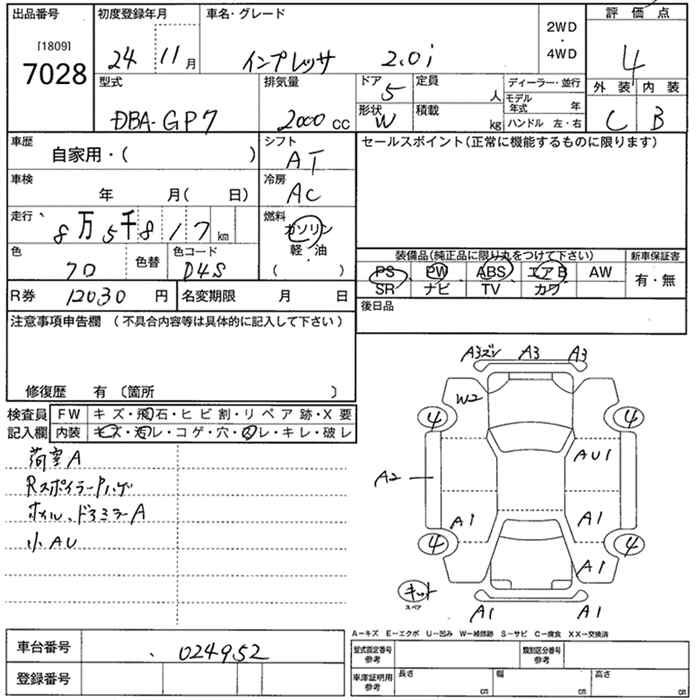 出品番号 初度登録年月 車名・グレード 2WD ・ 4WD 評価点
[1809] 7028 24 11月 インプレッサ 2.0i 4
型式 排気量 ドア 定員 ディーラー・並行 外装 内装
DBA-GP7 2000cc 5 人 モデル年式 年 C B
形状 W 積載 kg ハンドル 左・右
車歴 自家用・( ) シフト AT セールスポイント(正常に機能するものに限ります)
車検 年 月( 日) 冷房 AC
走行 8万5千817km 燃料 ガソリン
軽・油
( )
色 70 色替 色コード D4S
装備品(純正品に限り丸をつけて下さい) 新車保証書
PS PW ABS エアB AW 有・無
SR ナビ TV カワ
R券 12030円 名変期限 月 日 後日品
注意事項申告欄 (不具合内容等は具体的に記入して下さい)
修復歴 有 〔箇所 〕
検査員 FW キズ・飛石・ヒビ割・リペア跡・X要
記入欄 内装 キズ・汚レ・コゲ・穴・スレ・キレ・破レ
荷室A
RスポイラーPハゲ
ホイル、ドアミラーA
小AU
A3ズレ A3 A3
W2
4 4
AU1
A2
A1 A1
4 4
A1
キット
スペア
A1 A1
A−キズ E−エクボ U−凹み W−補修跡 S−サビ C−腐食 XX−交換済
車台番号 024952
型式指定番号 参考 類別区分番号 参考
登録番号
車庫証明用 参考 長さ cm 幅 cm 高さ cm